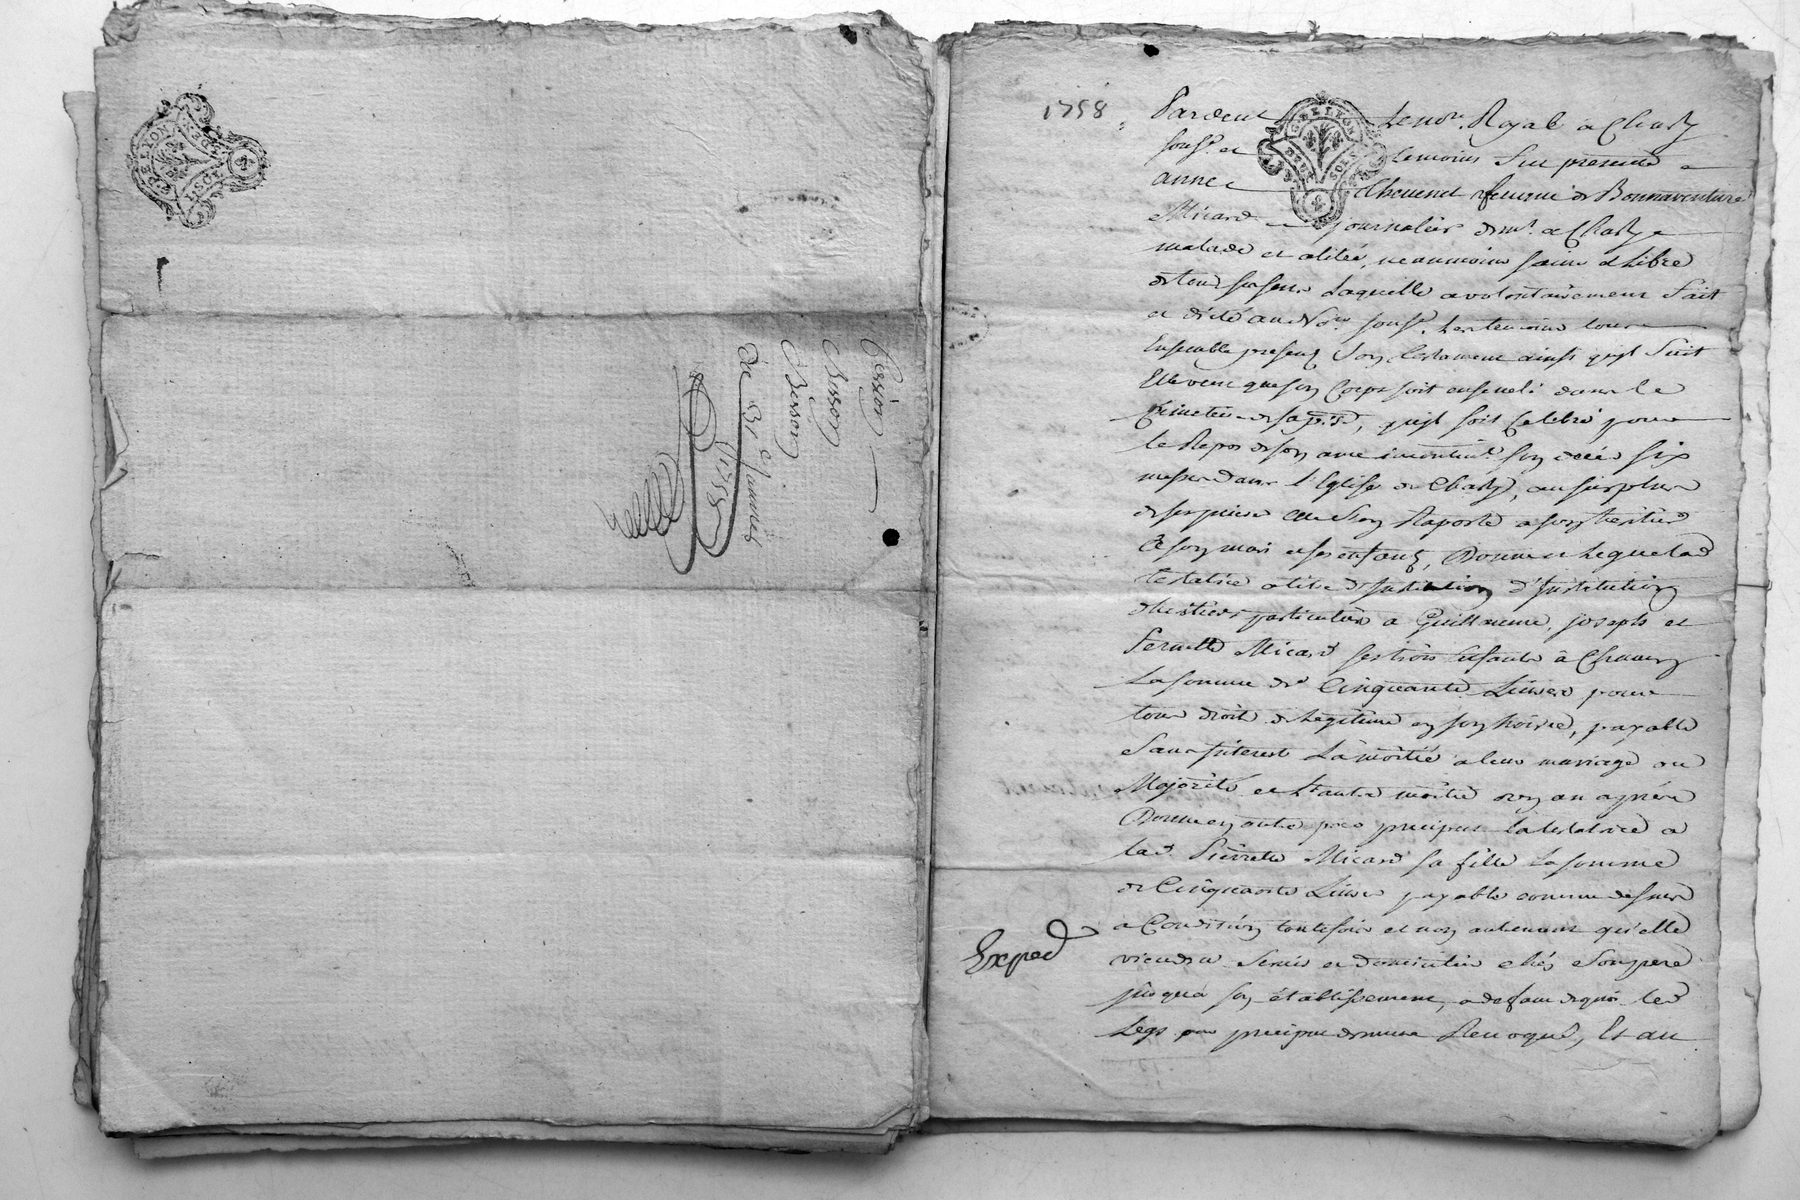 Cession
Besson
Besson
du 31e Janvier
1758
1758
Pardevt Le nore. Royal a Charly
souse. et temoins fut presente
anne Thevenet femme de Bonnaventure
Micard journalier demt. a Charly
malade et alitée, neanmoins saine et Libre
de tous ses sens Laquelle a volontairement fait
et dicté au No.re souse. Les temoins tous
Ensemble presens son testament ainsi quil suit
Elle veut que son Corps soit enseveli dans le
Cimetiere de sa p.sse, quil soit Celebré pour
le Repos de son ame incontint. son decés six
messes dans l'Eglise de Charly, au surplus
de ses prieres Elle s'en Raporte a son heritier
a son mari et ses enfants, Donne et Legue lad
testatrice a titre d'institution d'Institution
dheritiers particuliers a Guillaume, joseph et
Pernette Micard ses trois Enfants à Chacun
La somme de Cinquante Livres pour
tous droits de Legitime en son hoirie, payable
Sans Interest La moitié a leur mariage ou
Majorité et L'autre moitié un an après
Donne en outre par preciput la testatrice a
lad. Pierrette Micard sa fille La somme
de Cinquante Livres payable comme dessus
a Condition toutefois et non autrement qu'elle
viendra Servir et domicilier chés Son pere
jusqua son établissement, a defaut de quoi led
Legs par preciput demeure Revoqué, Et au
Exped